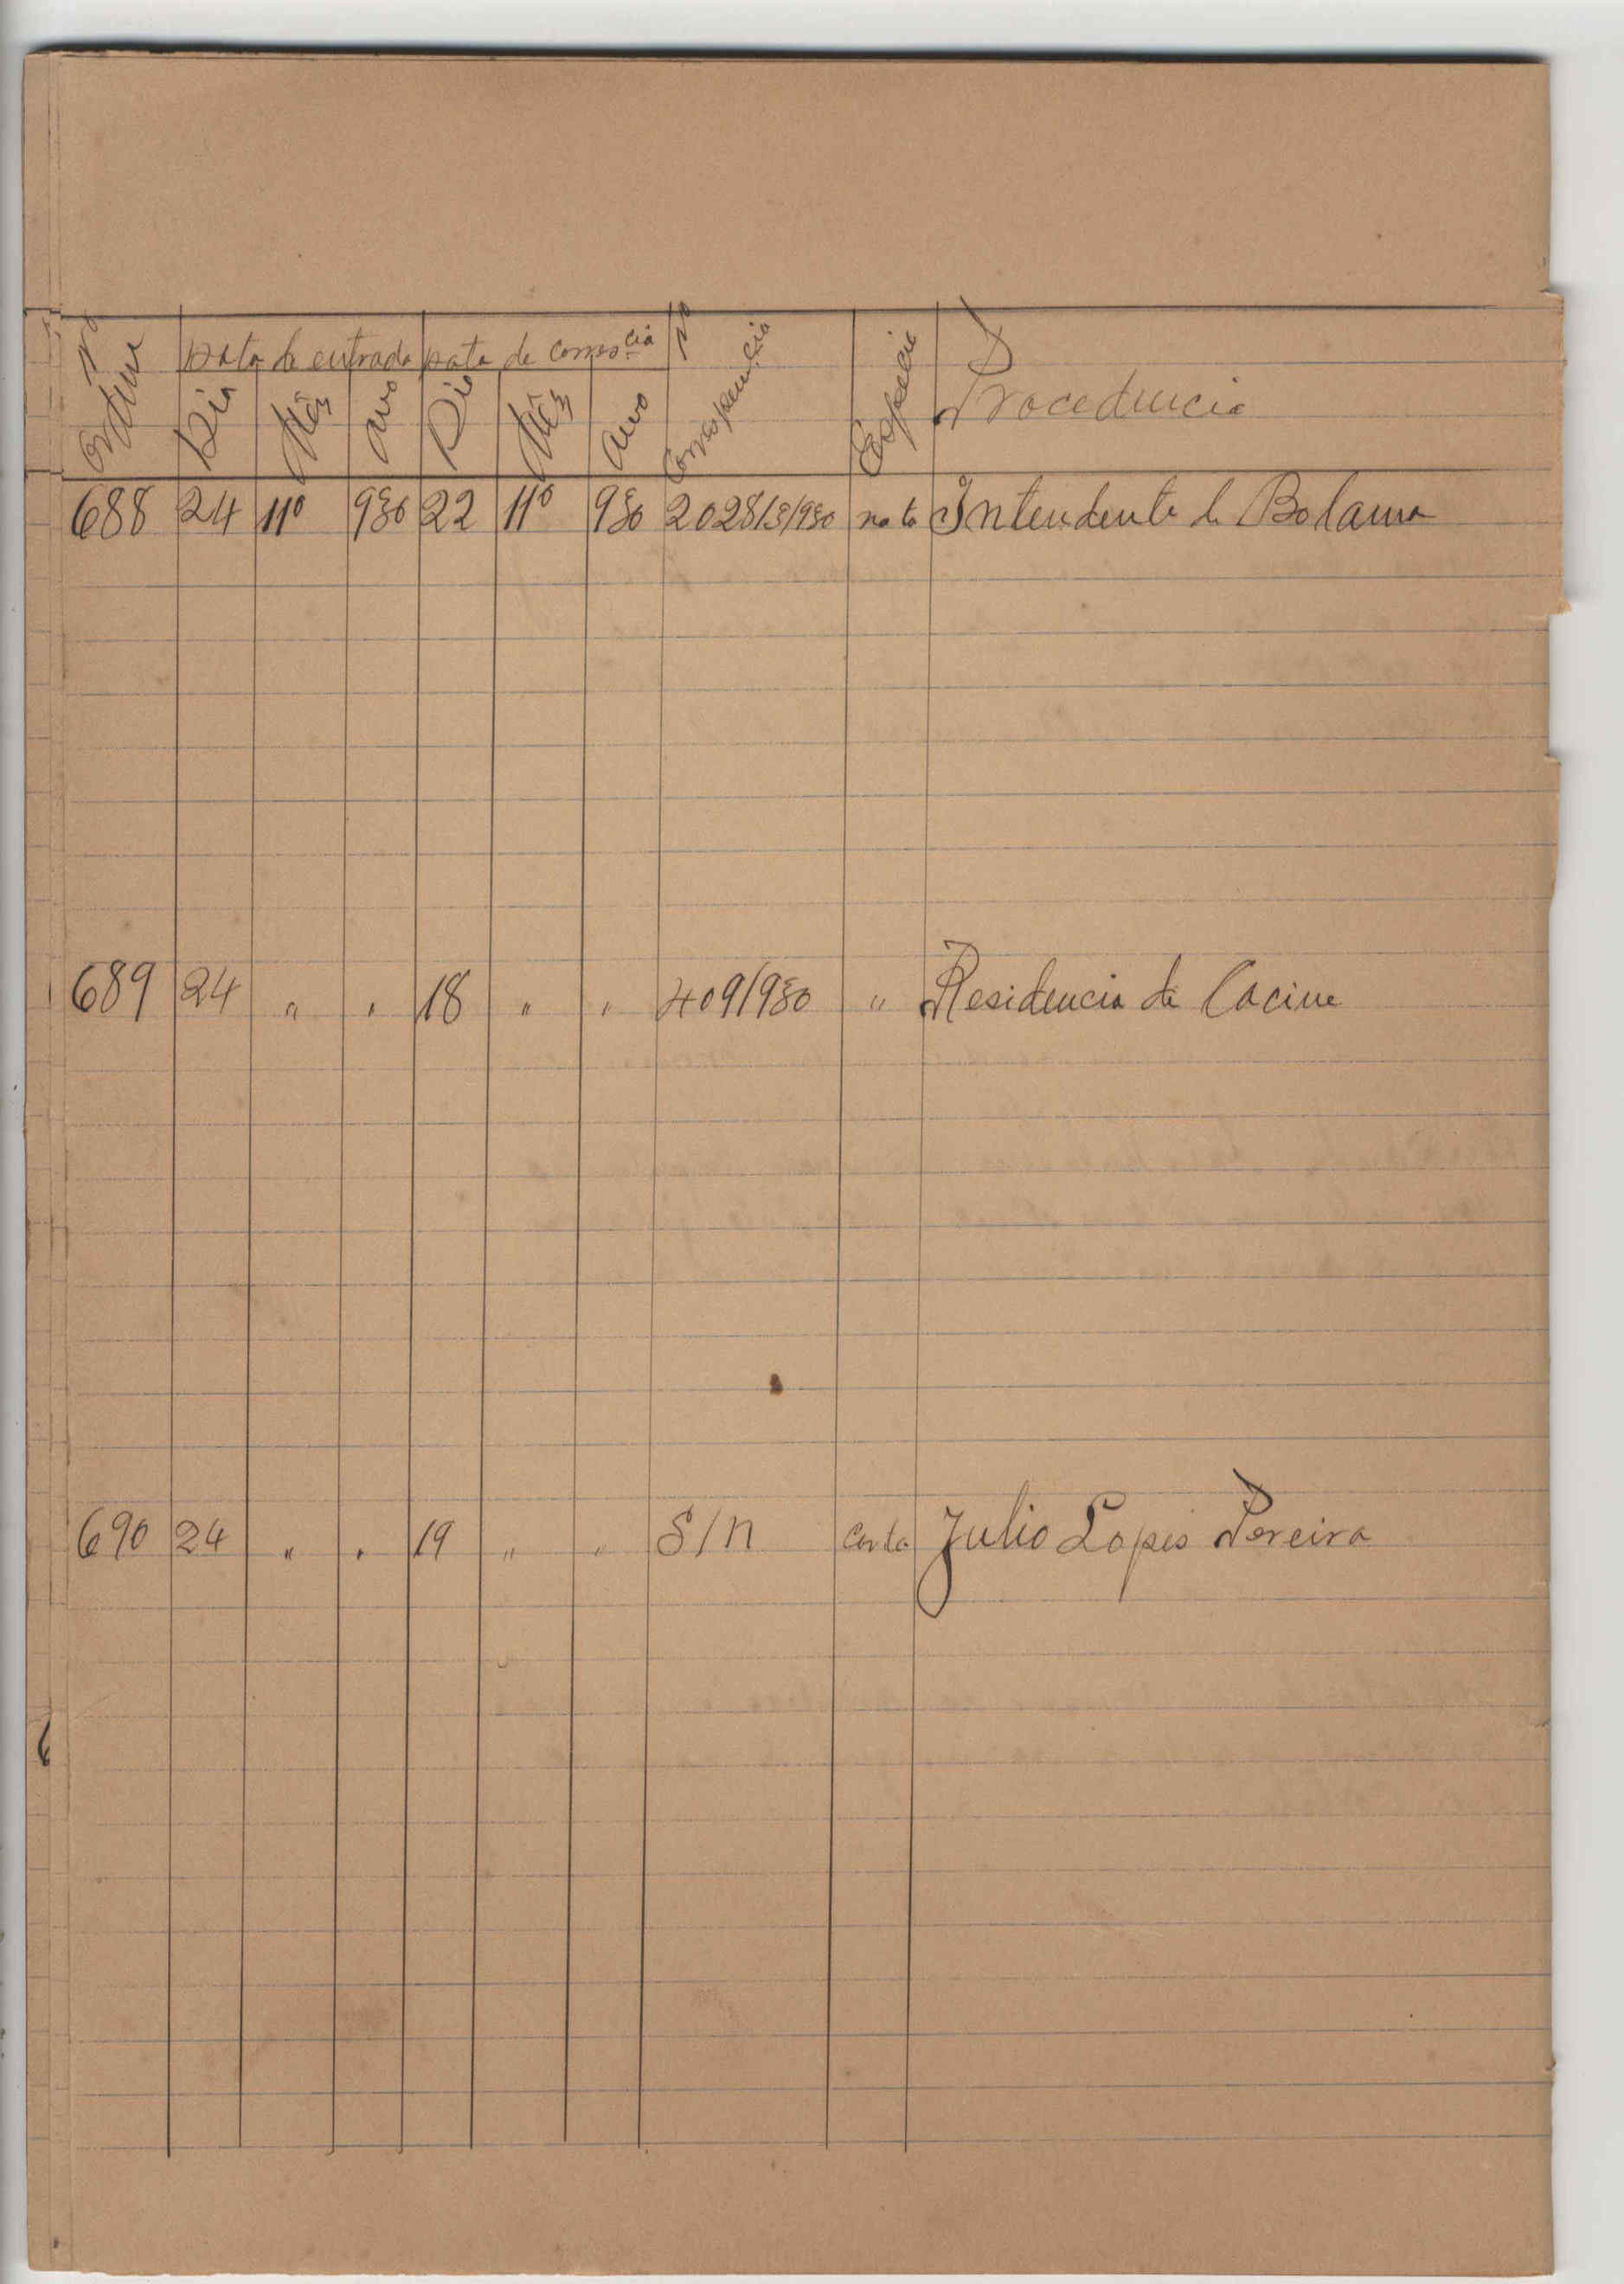 Nº Ordem
Data de entrada
Data de corresp.cia
Dia Mês Ano Dia Mês Ano
Nº Correspencia
Especie
Procedencia
688 24 11º 930 22 11º 930 2028/3/930 nota Intendente de Bolama
689 24 " " 18 " " 409/930 " Residencia de Cacine
690 24 " " 19 " " S/n Carta Julio Lopes Pereira